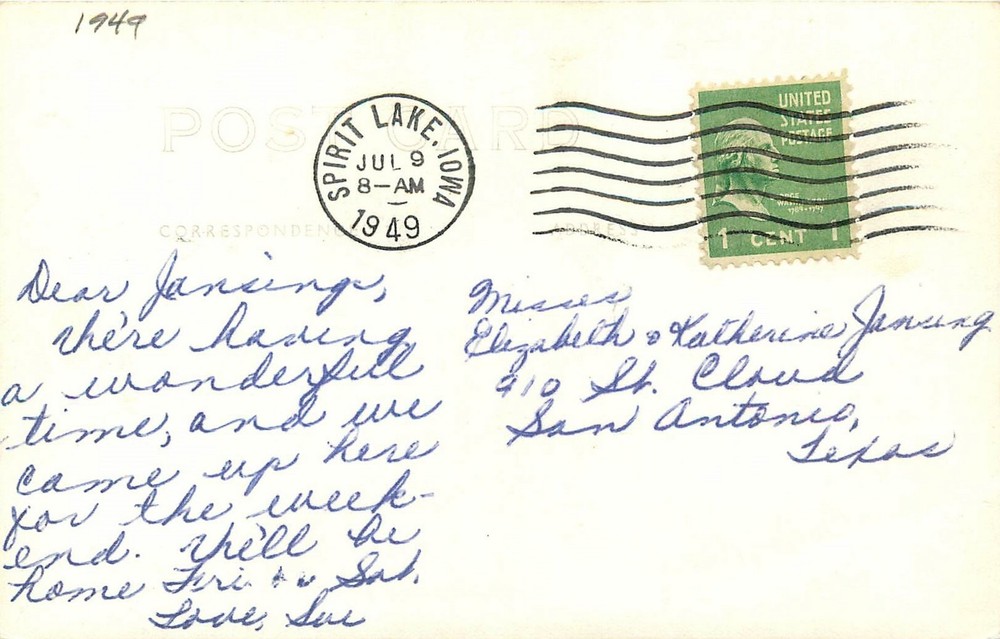 1949
POST CARD
SPIRIT LAKE, IOWA
JUL 9
8-AM
1949
UNITED
STATES
POSTAGE
1 CENT 1
CORRESPONDENCE
ADDRESS
Dear Jansings,
We're having
a wonderful
time, and we
came up here
for the week-
end. We'll be
home Fri. Sat.
Love, Sue
Misses
Elizabeth & Katherine Jansing
910 St. Cloud
San Antonio,
Texas